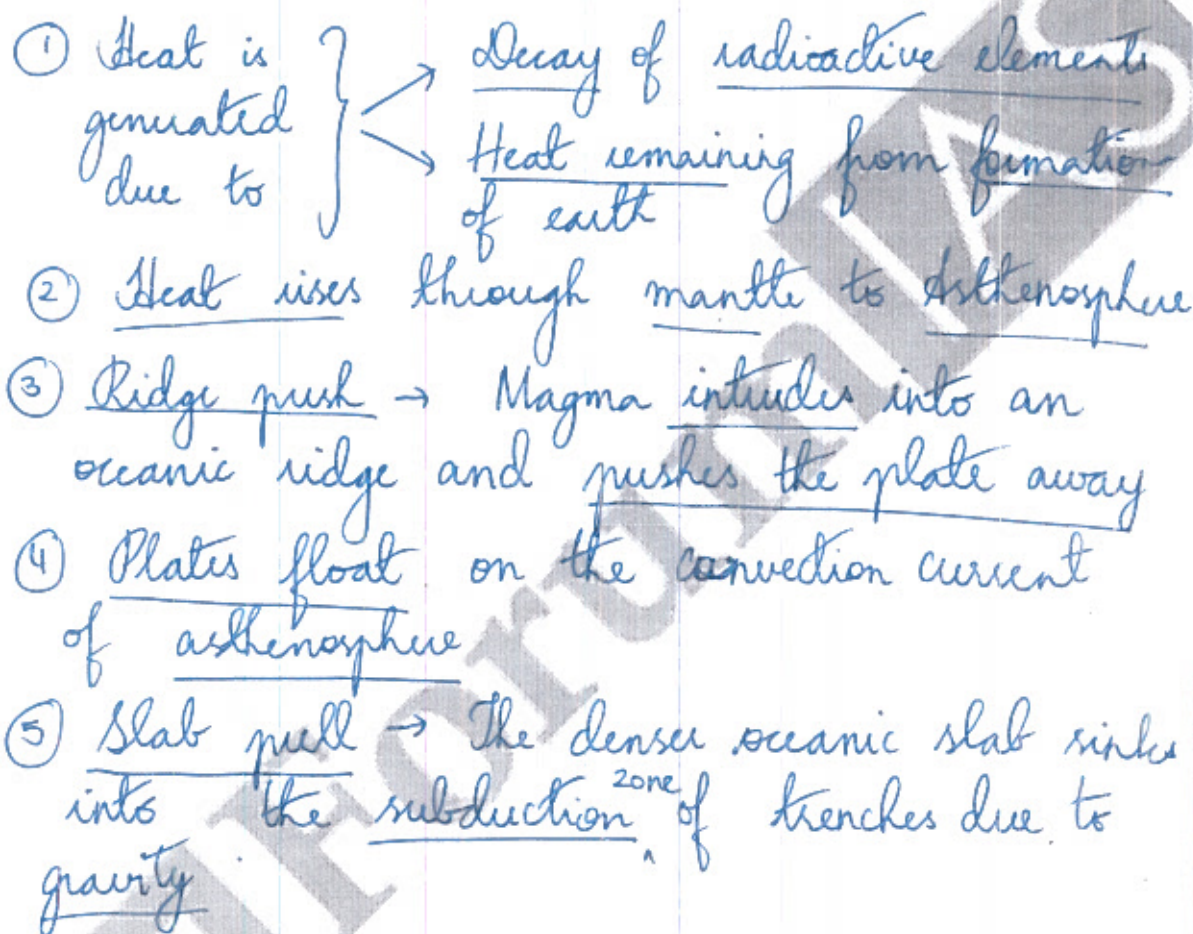 ① Heat is } → Decay of radioactive elements
generated
due to → Heat remaining from formation
of earth
② Heat rises through mantle to Asthenosphere
③ Ridge push → Magma intrudes into an
oceanic ridge and pushes the plate away
④ Plates float on the convection current
of asthenosphere
⑤ Slab pull → The denser oceanic slab sinks
into the subduction zone of trenches due to
gravity
ForumIAS